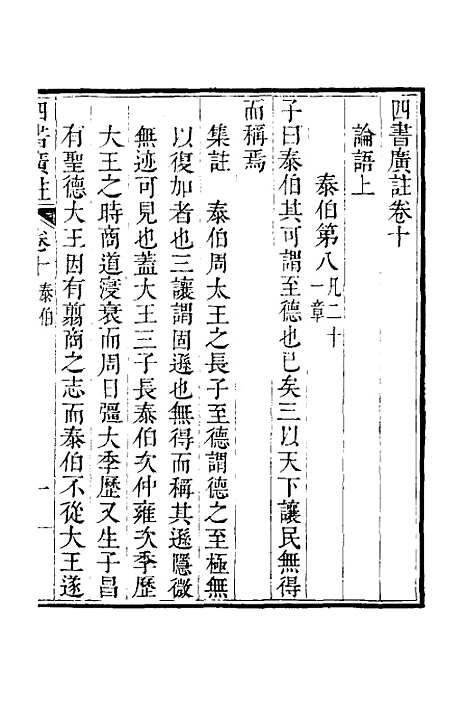 四書廣註卷十
論語上
泰伯第八凡二十一章
子曰泰伯其可謂至德也已矣三以天下讓民無得
而稱焉
集註　泰伯周太王之長子至德謂德之至極無
以復加者也三讓謂固遜也無得而稱其遜隱微
無迹可見也蓋大王三子長泰伯次仲雍次季歷
大王之時商道寖衰而周日彊大季歷又生子昌
有聖德大王因有翦商之志而泰伯不從大王遂
四書廣註　卷十　泰伯　一